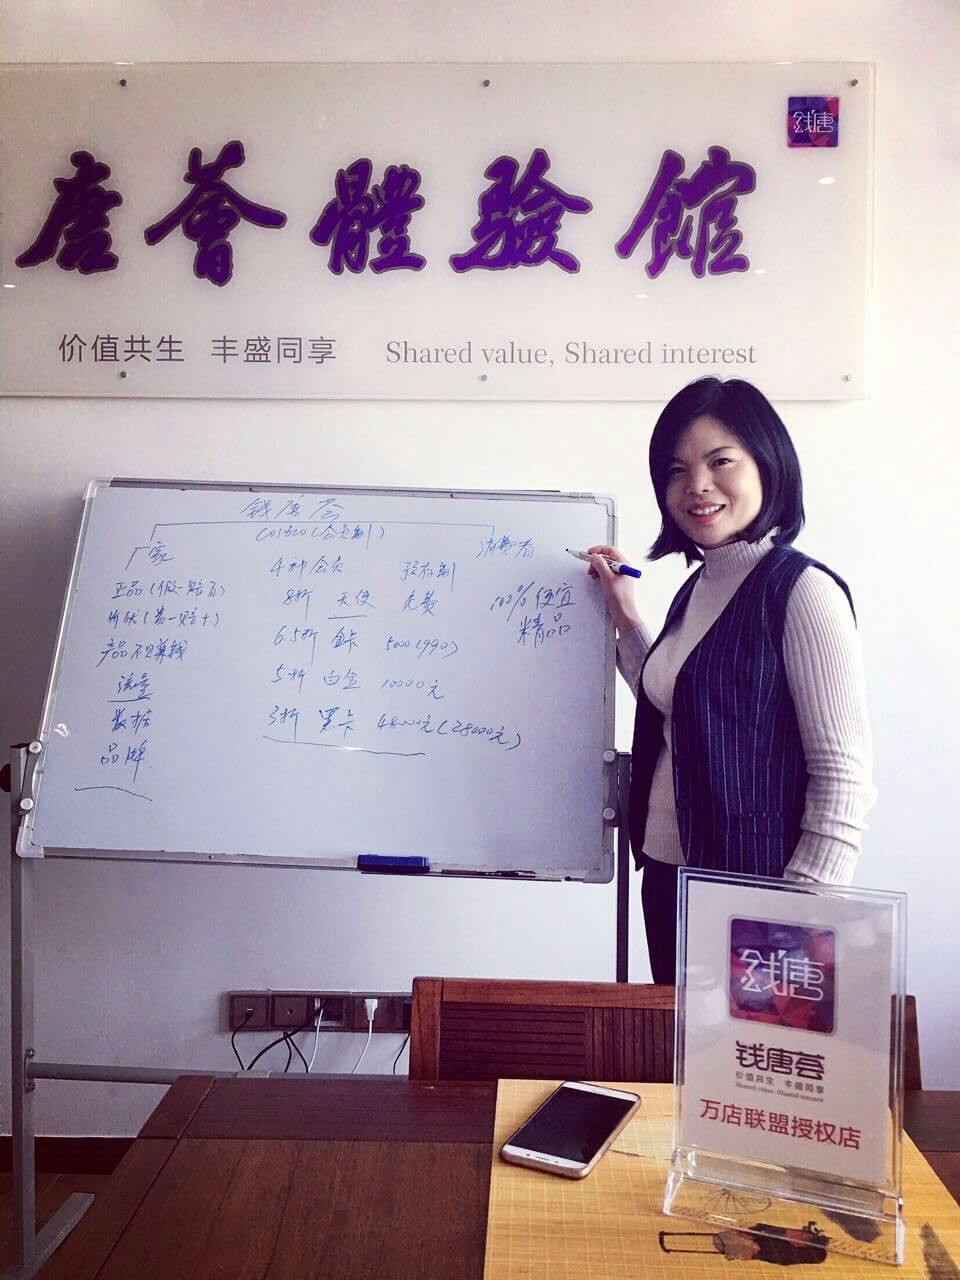 钱唐
唐薈體驗館
价值共生 丰盛同享 Shared value, Shared interest
钱唐荟
costco(会员制)
厂家
正品(假一赔万)
价优(贵一赔十)
产品不赚钱
流量
数据
品牌
4种会员 预存制
8折 天使 免费
6.5折 金卡 5000(990)
5折 白金 10000元
3折 黑卡 48000元(28000元)
消费者
100%便宜
精品
钱唐
钱唐荟
价值共生 丰盛同享
Shared value, Shared interest
万店联盟授权店